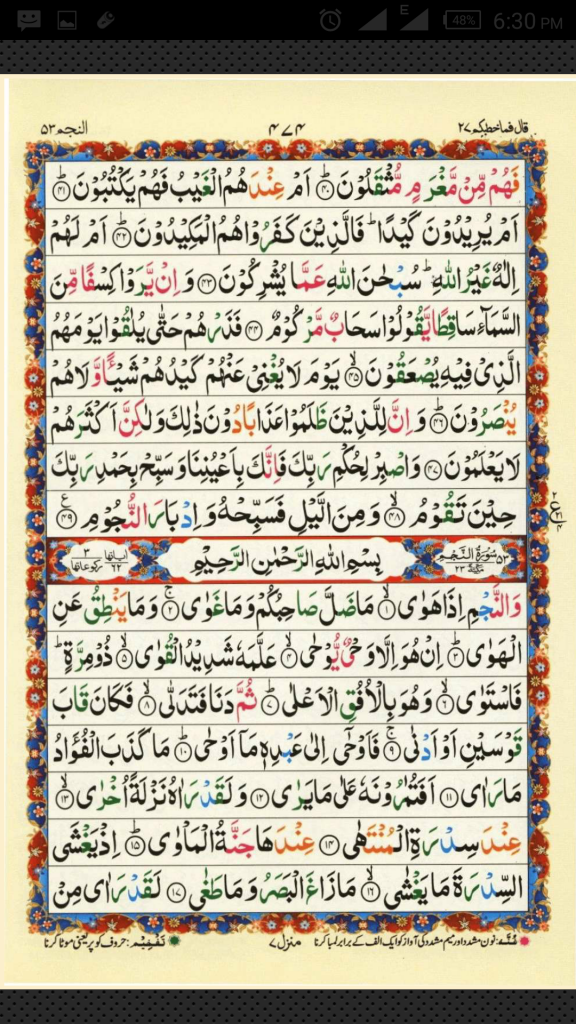 E 48% 6:30 PM
قال فما خطبكم ٢٧ ٤٧٤ النجم ٥٣
فَهُمْ مِّنْ مَّغْرَمٍ مُّثْقَلُوْنَ ۞٤٠ اَمْ عِنْدَهُمُ الْغَيْبُ فَهُمْ يَكْتُبُوْنَ ۞٤١
اَمْ يُرِيْدُوْنَ كَيْدًا ؕ فَالَّذِيْنَ كَفَرُوْا هُمُ الْمَكِيْدُوْنَ ۞٤٢ اَمْ لَهُمْ
اِلٰهٌ غَيْرُ اللّٰهِ ؕ سُبْحٰنَ اللّٰهِ عَمَّا يُشْرِكُوْنَ ۞٤٣ وَ اِنْ يَّرَوْا كِسْفًا مِّنَ
السَّمَآءِ سَاقِطًا يَّقُوْلُوْا سَحَابٌ مَّرْكُوْمٌ ۞٤٤ فَذَرْهُمْ حَتّٰى يُلٰقُوْا يَوْمَهُمُ
الَّذِيْ فِيْهِ يُصْعَقُوْنَ ۞٤٥ يَوْمَ لَا يُغْنِيْ عَنْهُمْ كَيْدُهُمْ شَيْـًٔا وَّلَا هُمْ
يُنْصَرُوْنَ ۞٤٦ وَ اِنَّ لِلَّذِيْنَ ظَلَمُوْا عَذَابًا دُوْنَ ذٰلِكَ وَلٰكِنَّ اَكْثَرَهُمْ
لَا يَعْلَمُوْنَ ۞٤٧ وَاصْبِرْ لِحُكْمِ رَبِّكَ فَاِنَّكَ بِاَعْيُنِنَا وَسَبِّحْ بِحَمْدِ رَبِّكَ
حِيْنَ تَقُوْمُ ۞٤٨ وَمِنَ الَّيْلِ فَسَبِّحْهُ وَ اِدْبَارَ النُّجُوْمِ ۞٤٩
٥٣ سُوْرَةُ النَّجْمِ مَكِّيَّةٌ ٢٣ بِسْمِ اللّٰهِ الرَّحْمٰنِ الرَّحِيْمِ اٰياتها ٦٢ ركوعاتها ٣
وَالنَّجْمِ اِذَا هَوٰى ۞١ مَا ضَلَّ صَاحِبُكُمْ وَمَا غَوٰى ۞٢ وَمَا يَنْطِقُ عَنِ
الْهَوٰى ۞٣ اِنْ هُوَ اِلَّا وَحْيٌ يُّوْحٰى ۞٤ عَلَّمَهٗ شَدِيْدُ الْقُوٰى ۞٥ ذُوْ مِرَّةٍ ؕ
فَاسْتَوٰى ۞٦ وَهُوَ بِالْاُفُقِ الْاَعْلٰى ۞٧ ثُمَّ دَنَا فَتَدَلّٰى ۞٨ فَكَانَ قَابَ
قَوْسَيْنِ اَوْ اَدْنٰى ۞٩ فَاَوْحٰٓى اِلٰى عَبْدِهٖ مَآ اَوْحٰى ۞١٠ مَا كَذَبَ الْفُؤَادُ
مَا رَاٰى ۞١١ اَفَتُمٰرُوْنَهٗ عَلٰى مَا يَرٰى ۞١٢ وَلَقَدْ رَاٰهُ نَزْلَةً اُخْرٰى ۞١٣
عِنْدَ سِدْرَةِ الْمُنْتَهٰى ۞١٤ عِنْدَهَا جَنَّةُ الْمَاْوٰى ۞١٥ اِذْ يَغْشَى
السِّدْرَةَ مَا يَغْشٰى ۞١٦ مَا زَاغَ الْبَصَرُ وَمَا طَغٰى ۞١٧ لَقَدْ رَاٰى مِنْ
غنّہ: نون مشدد اور میم مشدد کی آواز کو ایک الف کے برابر لمبا کرنا منزل ٧ تفخیم: حروف کو پُر یعنی موٹا کرنا